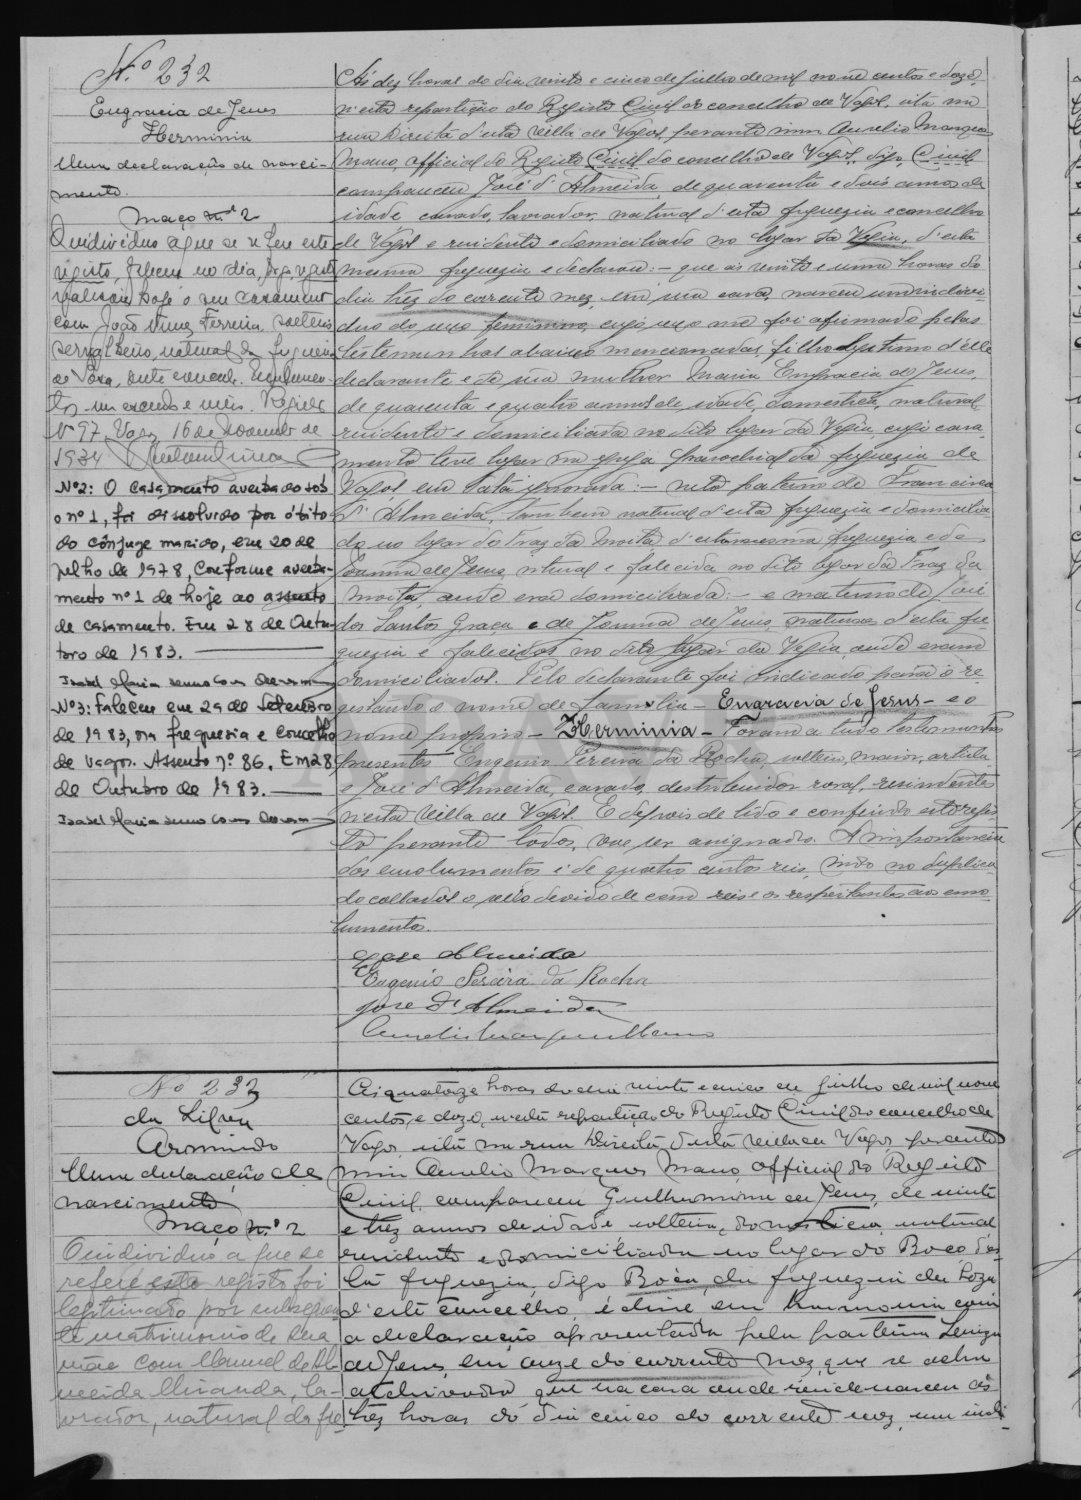 N.º 232
Engracia de Jesus
Herminia
Uma declaração de nasci-
mento.
Maço n.º 2
O individuo a que se refere este
registo, digo, registo
realisou hoje o seu casamento
com João Nunes Ferreira, solteiro
serralheiro, natural da freguesia
de Sôza, deste concelho. Emolumen-
tos um escudo e meio. Registo
Nº 97. Vagos, 16 de novembro de
1934
Nº2: O casamento averbado sob
o nº 1, foi dissolvido por óbito
do cônjuge marido, em 20 de
julho de 1978, conforme averba-
mento nº 1 de hoje ao assento
de casamento. Em 28 de Outu-
bro de 1983.
Isabel Maria
Nº3: Faleceu em 29 de Setembro
de 1983, na freguesia e concelho
de Vagos. Assento nº 86. Em 28
de Outubro de 1983.
Isabel Maria
Ás dez horas do dia vinte e cinco de julho de mil nove centos e doze,
n'esta repartição do Registo Civil do concelho de Vagos, sita na
rua Direita d'esta villa de Vagos, perante mim Aurelio Marques
Mano, official do Registo Civil do concelho de Vagos, digo, Civil
compareceu José d'Almeida, de quarenta e dois annos de
idade, casado, lavrador, natural d'esta freguezia e concelho
de Vagos e residente e domiciliado no logar da Vegia, d'esta
mesma freguezia e declarou: - que ás vinte e uma horas do
dia três do corrente mez, em sua casa, nasceu um indivi-
duo do sexo feminino, cujo sexo me foi afirmado pelas
testemunhas abaixo mencionadas, filho legitimo d'elle
declarante e de sua mulher Maria Engracia de Jesus,
de quarenta e quatro annos de idade, domestica, natural,
residente e domiciliada no dito logar da Vegia, cujo casa-
mento teve logar na egreja parochial da freguezia de
Vagos, em data ignorada: - neto paterno de Francisco
d'Almeida, tambem natural d'esta freguezia e domicilia-
do no logar de Traz da Moita d'esta mesma freguezia e de
Joanna de Jesus, natural e falecida no dito logar de Traz da
Moita, aonde era domiciliada: - e materno de José
dos Santos Graça e de Joanna de Jesus, naturaes d'esta fre-
guezia e falecidos no dito logar da Vegia, aonde eram
domiciliados. Pelo declarante foi indicado para o re-
gestando o nome de familia - Engracia de Jesus - e o
nome proprio - Herminia - Foram a tudo testemunhas
presentes Eugenio Pereira da Rocha, solteiro, maior, artista
e José d'Almeida, casado, destribuidor rural, residentes
n'esta villa de Vagos. E depois de lido e conferido este regis-
to perante todos, vae ser assignado. A importancia
dos emolumentos é de quatro centos reis, indo no duplica-
do collados o sello devido de cem reis e os respeitantes aos emo-
lumentos.
Jose Almeida
Eugenio Pereira da Rocha
Jose d'Almeida
Aurelio Marques Mano
Nº 233
Armindo
Uma declaração de
nascimento
Maço n.º 2
O individuo a que se
refere este registo foi
legitimado por subsequen-
te matrimonio de sua
mãe com Manuel de Al-
meida Miranda, la-
vrador, natural da fre-
Ás quatorze horas do dia vinte e cinco de julho de mil nove
centos e doze, n'esta repartição do Registo Civil do concelho de
Vagos, sita na rua Direita, d'esta villa de Vagos, perante
mim Aurelio Marques Mano, official do Registo
Civil, compareceu Guilhermina de Jesus, de vinte
e trez annos de idade, solteira, domestica, natural
residente e domiciliada no logar do Boco d'es-
ta freguezia, digo Boco, da freguezia de Soza
d'este concelho, e disse, em harmonia com
a declaração apresentada pela parteira
de Jesus, em onze do corrente mez, que se acha
archivada que na casa onde reside nasceu ás
trêz horas do dia cinco do corrente mez, um indi-